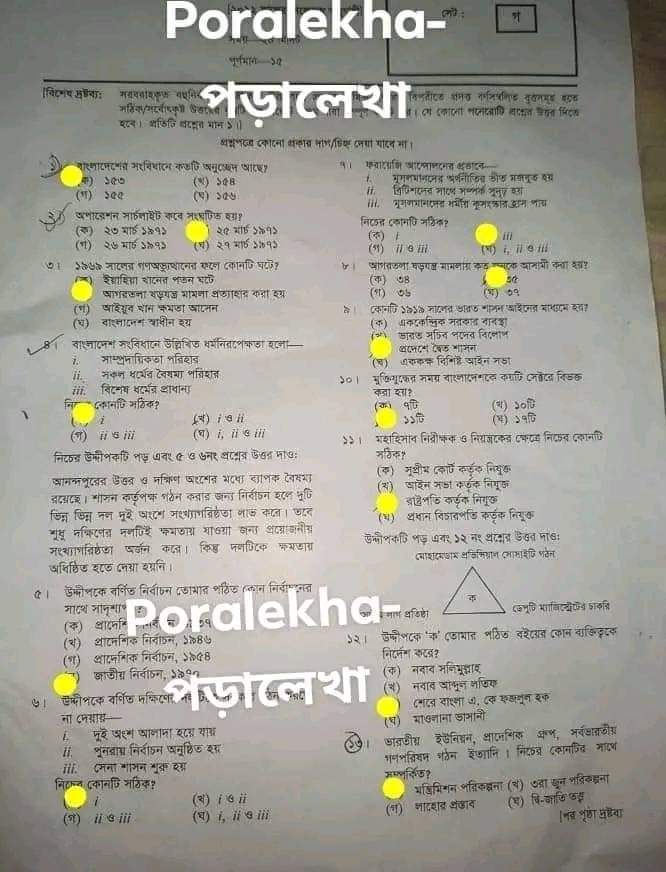 Poralekha-
সেট :
গ
পূর্ণমান—১৫
পড়ালেখা
[বিশেষ দ্রষ্টব্য:
হবে। প্রতিটি প্রশ্নের মান ১।]
প্রশ্নপত্রে কোনো প্রকার দাগ/চিহ্ন দেয়া যাবে না।
১। বাংলাদেশের সংবিধানে কতটি অনুচ্ছেদ আছে?
(ক) ১৫৩ (খ) ১৫৪
(গ) ১৫৫ (ঘ) ১৫৬
২। অপারেশন সার্চলাইট কবে সংঘটিত হয়?
(ক) ২৩ মার্চ ১৯৭১ ২৫ মার্চ ১৯৭১
(গ) ২৬ মার্চ ১৯৭১ (ঘ) ২৭ মার্চ ১৯৭১
৩। ১৯৬৯ সালের গণঅভ্যুত্থানের ফলে কোনটি ঘটে?
ইয়াহিয়া খানের পতন ঘটে
আগরতলা ষড়যন্ত্র মামলা প্রত্যাহার করা হয়
(গ) আইয়ুব খান ক্ষমতা আসেন
(ঘ) বাংলাদেশ স্বাধীন হয়
৪। বাংলাদেশ সংবিধানে উল্লিখিত ধর্মনিরপেক্ষতা হলো—
i. সাম্প্রদায়িকতা পরিহার
ii. সকল ধর্মের বৈষম্য পরিহার
iii. বিশেষ ধর্মের প্রাধান্য
কোনটি সঠিক?
i (খ) i ও ii
(গ) ii ও iii (ঘ) i, ii ও iii
নিচের উদ্দীপকটি পড় এবং ৫ ও ৬নং প্রশ্নের উত্তর দাও:
আনন্দপুরের উত্তর ও দক্ষিণ অংশের মধ্যে ব্যাপক বৈষম্য
রয়েছে। শাসন কর্তৃপক্ষ গঠন করার জন্য নির্বাচন হলে দুটি
ভিন্ন ভিন্ন দল দুই অংশে সংখ্যাগরিষ্ঠতা লাভ করে। তবে
শুধু দক্ষিণের দলটিই ক্ষমতায় যাওয়া জন্য প্রয়োজনীয়
সংখ্যাগরিষ্ঠতা অর্জন করে। কিন্তু দলটিকে ক্ষমতায়
অধিষ্ঠিত হতে দেয়া হয়নি।
৫। উদ্দীপকে বর্ণিত নির্বাচন তোমার পঠিত কোন নির্বাচনের
সাথে
Poralekha-
(ক)
(খ) প্রাদেশিক নির্বাচন, ১৯৪৬
(গ) প্রাদেশিক নির্বাচন, ১৯৫৪
জাতীয় নির্বাচন,
পড়ালেখা
৬। উদ্দীপকে বর্ণিত
না দেয়ায়—
i. দুই অংশ আলাদা হয়ে যায়
ii. পুনরায় নির্বাচন অনুষ্ঠিত হয়
iii. সেনা শাসন শুরু হয়
কোনটি সঠিক?
i (খ) i ও ii
(গ) ii ও iii (ঘ) i, ii ও iii
৭। ফরায়েজি আন্দোলনের প্রভাবে—
i. মুসলমানদের অর্থনীতির ভীত মজবুত হয়
ii. ব্রিটিশদের সাথে সম্পর্ক সুদৃঢ় হয়
iii. মুসলমানদের ধর্মীয় কুসংস্কার হ্রাস পায়
নিচের কোনটি সঠিক?
(ক) i iii
(গ) ii ও iii (ঘ) i, ii ও iii
৮। আগরতলা ষড়যন্ত্র মামলায় কত আসামী করা হয়?
(ক) ৩৪ ৩৫
(গ) ৩৬ (ঘ) ৩৭
৯। কোনটি ১৯১৯ সালের ভারত শাসন আইনের মাধ্যমে হয়?
(ক) এককেন্দ্রিক সরকার ব্যবস্থা
ভারত সচিব পদের বিলোপ
প্রদেশে দ্বৈত শাসন
(ঘ) এককক্ষ বিশিষ্ট আইন সভা
১০। মুক্তিযুদ্ধের সময় বাংলাদেশকে কয়টি সেক্টরে বিভক্ত
করা হয়?
(ক) ৭টি (খ) ১০টি
১১টি (ঘ) ১৭টি
১১। মহাহিসাব নিরীক্ষক ও নিয়ন্ত্রকের ক্ষেত্রে নিচের কোনটি
সঠিক?
(ক) সুপ্রীম কোর্ট কর্তৃক নিযুক্ত
(খ) আইন সভা কর্তৃক নিযুক্ত
রাষ্ট্রপতি কর্তৃক নিযুক্ত
(ঘ) প্রধান বিচারপতি কর্তৃক নিযুক্ত
উদ্দীপকটি পড় এবং ১২ নং প্রশ্নের উত্তর দাও:
মোহামেডান প্রভিন্সিয়াল সোসাইটি গঠন
ক
প্রতিষ্ঠা ডেপুটি ম্যাজিস্ট্রেটের চাকরি
১২। উদ্দীপকে 'ক' তোমার পঠিত বইয়ের কোন ব্যক্তিত্বকে
নির্দেশ করে?
(ক) নবাব সলিমুল্লাহ
(খ) নবাব আব্দুল লতিফ
শেরে বাংলা এ. কে ফজলুল হক
(ঘ) মাওলানা ভাসানী
১৩। ভারতীয় ইউনিয়ন, প্রাদেশিক গ্রুপ, সর্বভারতীয়
গণপরিষদ গঠন ইত্যাদি। নিচের কোনটির সাথে
সম্পর্কিত?
মন্ত্রিমিশন পরিকল্পনা (খ) ৩রা জুন পরিকল্পনা
(গ) লাহোর প্রস্তাব (ঘ) দ্বি-জাতি তত্ত্ব
[পর পৃষ্ঠা দ্রষ্টব্য